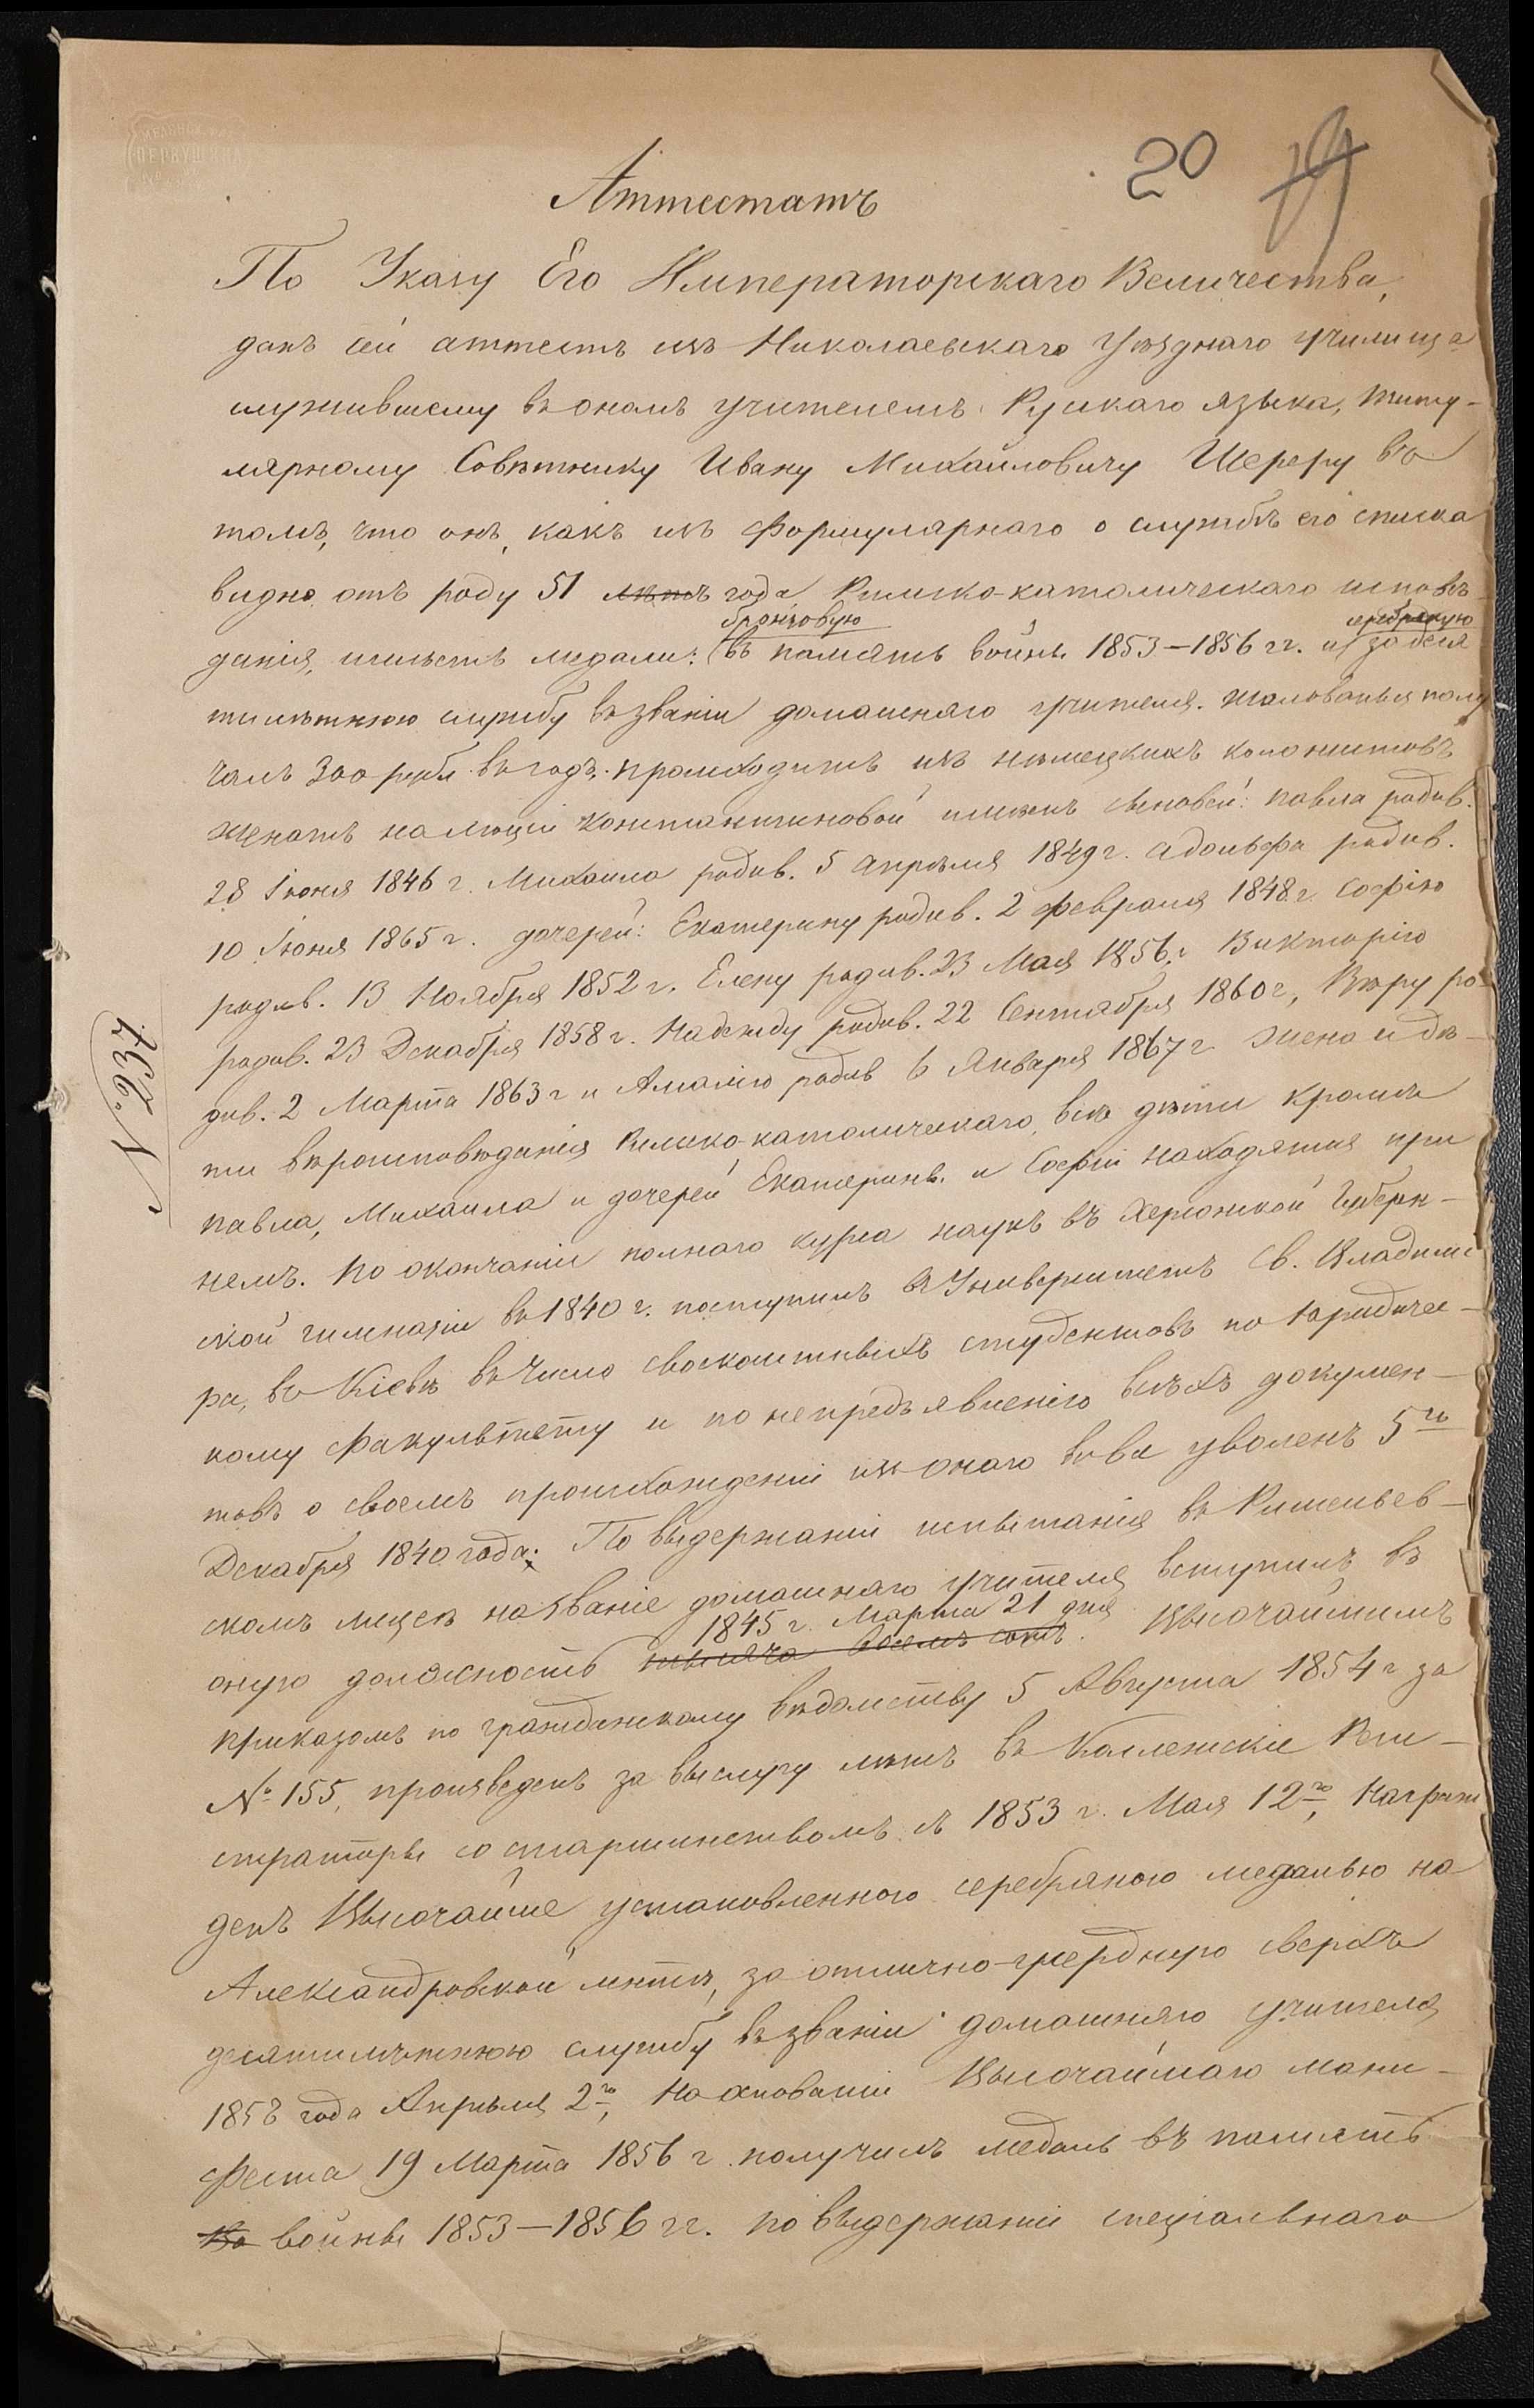 20 19
Аттестатъ
По Указу Его Императорскаго Величества,
данъ сей аттестъ изъ Николаевскаго Уѣзднаго училища
служившему въ ономъ учителемъ Рускаго языка, титу-
лярному Совѣтнику Ивану Михайловичу Шереру въ
томъ, что онъ, какъ изъ формулярнаго о службѣ его списка
видно отъ роду 51 лѣтъ года Римско-католическаго исповѣ
бронзовую серебряную
данія, имѣетъ медали: въ память войны 1853–1856 гг. и за деся
тилѣтнюю службу въ званіи домашняго учителя. жалованья полу
чалъ 300 рубл. въ годъ. происходитъ изъ нѣмецкихъ колонистовъ
женатъ на Люціи Константиновой имѣетъ сыновей: Павла родив.
28 Іюня 1846 г. Михаила родив. 5 Апрѣля 1849 г. Адольфа родив.
10 Іюня 1865 г. дочерей: Екатерину родив. 2 февраля 1848 г. Софію
родив. 13 Ноября 1852 г. Елену родив. 23 Мая 1856 г. Викторію
родив. 23 Декабря 1858 г. Надежду родив. 22 Сентября 1860 г, Вѣру ро-
див. 2 Марта 1863 г и Амалію родив 6 Января 1867 г жена и дѣ-
ти вѣроисповѣданія Римско-католическаго, всѣ дѣти кромѣ
Павла, Михаила и дочерей Екатерины и Софіи находятся при
немъ. по окончаніи полнаго курса наукъ въ Херсонской Губерн-
ской гимназіи въ 1840 г. поступилъ въ Университетъ Св. Владими
ра, въ Кіевѣ въ число своекоштныхъ студентовъ по Юридичес-
кому факультету и по непредъявленію всѣхъ докумен-
товъ о своемъ происхожденіи изъ онаго уволенъ 5го
Декабря 1840 года. По выдержаніи испытанія въ Ришельев-
скомъ лицеѣ на званіе домашняго учителя вступилъ въ
1845 г. Марта 21 дня
оную должность тысяча восемь сотъ. Высочайшимъ
приказомъ по гражданскому вѣдомству 5 Августа 1854 г за
№ 155, произведенъ за выслугу лѣтъ въ Коллежскіе Реги-
страторы со старшинствомъ съ 1853 г. Мая 12го, Награж
денъ Высочайше установленною серебряною медалью на
Александровской лентѣ, за отлично-усердную сверхъ
десятилѣтнюю службу въ званіи домашняго учителя
1858 года Апрѣля 2го, На основаніи Высочайшаго мани-
феста 19 Марта 1856 г. получилъ медаль въ память
во войны 1853–1856 гг. по выдержаніи спеціальнаго
№ 237